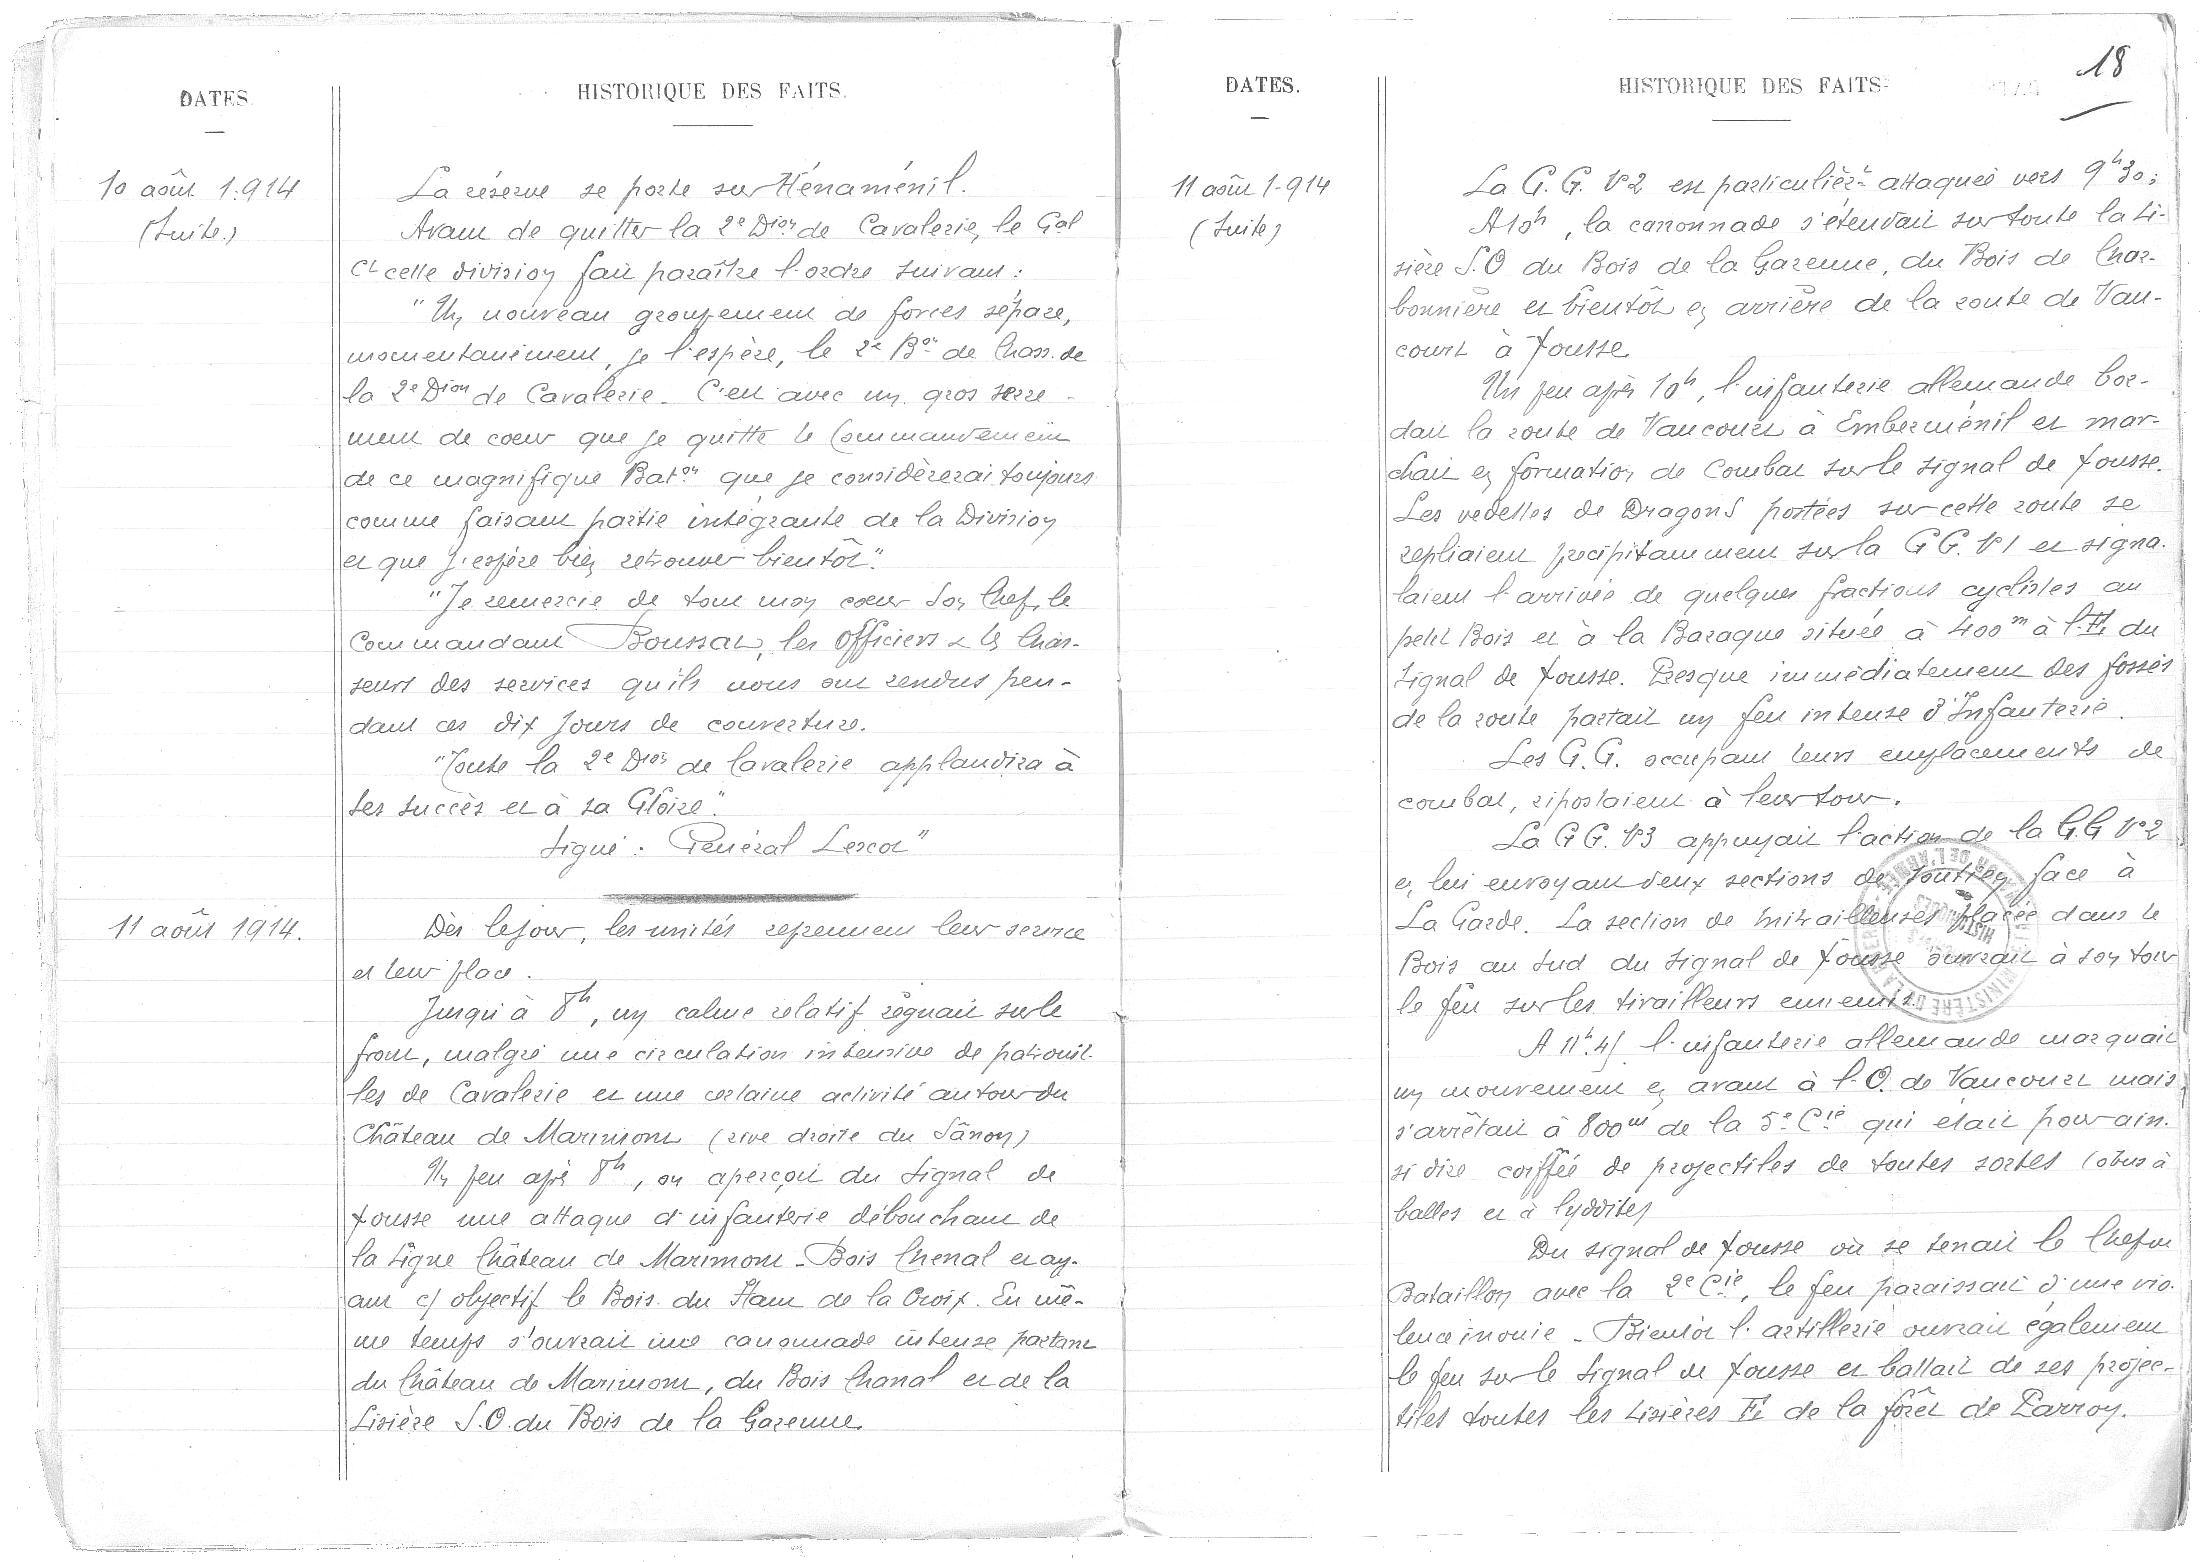 DATES.
HISTORIQUE DES FAITS.
10 août 1.914
(Suite.)
La réserve se porte sur Hénaménil.
Avant de quitter la 2e Dion de Cavalerie, le Gal
Ct cette division fait paraître l'ordre suivant :
"Un nouveau groupement de forces sépare,
momentanément, je l'espère, le 2e Bon de Chass. de
la 2e Dion de Cavalerie. C'est avec un gros serre-
ment de coeur que je quitte le Commandement
de ce magnifique Baton que je considèrerai toujours
comme faisant partie intégrante de la Division
et que j'espère bien retrouver bientôt."
"Je remercie de tout mon coeur son Chef, le
Commandant Boussat, les Officiers & les Chas-
seurs des services qu'ils nous ont rendus pen-
dant ces dix jours de couverture.
"Toute la 2e Dion de Cavalerie applaudira à
ses succès et à sa Gloire."
Signé : Général Lescot"
11 août 1914.
Dès le jour, les unités reprennent leur service
et leur place.
Jusqu'à 8h, un calme relatif régnait sur le
front, malgré une circulation intensive de patrouil-
les de Cavalerie et une certaine activité autour du
Château de Marimont (rive droite du Sânon)
Un peu après 8h, on aperçoit du Signal de
Xousse une attaque d'infanterie débouchant de
la ligne Château de Marimont - Bois Chenal et ay-
ant c/ objectif le Bois du Haut de la Croix. En mê-
me temps s'ouvrait une canonnade intense partant
du Château de Marimont, du Bois Chanal et de la
Lisière S.O. du Bois de la Garenne.
18
DATES.
HISTORIQUE DES FAITS.
11 août 1.914
(Suite)
La G.G. N°2 est particulièrt attaquée vers 9h30 ;
A 10h, la canonnade s'étendait sur toute la li-
sière S.O du Bois de la Garenne, du Bois de Char-
bonnière et bientôt en arrière de la route de Vau-
court à Xousse.
Un peu après 10h, l'infanterie allemande bor-
dait la route de Vaucourt à Emberménil et mar-
chait en formation de combat sur le signal de Xousse.
Les vedettes de Dragons postées sur cette route se
repliaient précipitamment sur la GG. N°1 et signa-
laient l'arrivée de quelques fractions cyclistes au
petit Bois et à la Baraque située à 400m à l'E du
Signal de Xousse. Presque immédiatement des fossés
de la route partait un feu intense d'Infanterie.
Les G.G. occupant leurs emplacements de
combat, ripostaient à leur tour.
La GG. N°3 appuyait l'action de la G.G N°2
en lui envoyant deux sections de soutien face à
La Garde. La section de mitrailleuses placée dans le
Bois au Sud du Signal de Xousse ouvrait à son tour
le feu sur les tirailleurs ennemis.
A 11h.45 l'infanterie allemande marquait
un mouvement en avant à l'O. de Vaucourt mais
s'arrêtait à 800m de la 5e Cie qui était pour ain-
si dire coiffée de projectiles de toutes sortes (obus à
balles et à lyddite)
Du signal de Xousse où se tenait le Chef du
Bataillon avec la 2e Cie, le feu paraissait d'une vio-
lence inouie - Bientôt l'artillerie ouvrait également
le feu sur le Signal de Xousse et battait de ses projec-
tiles toutes les lisières E de la forêt de Parroy.